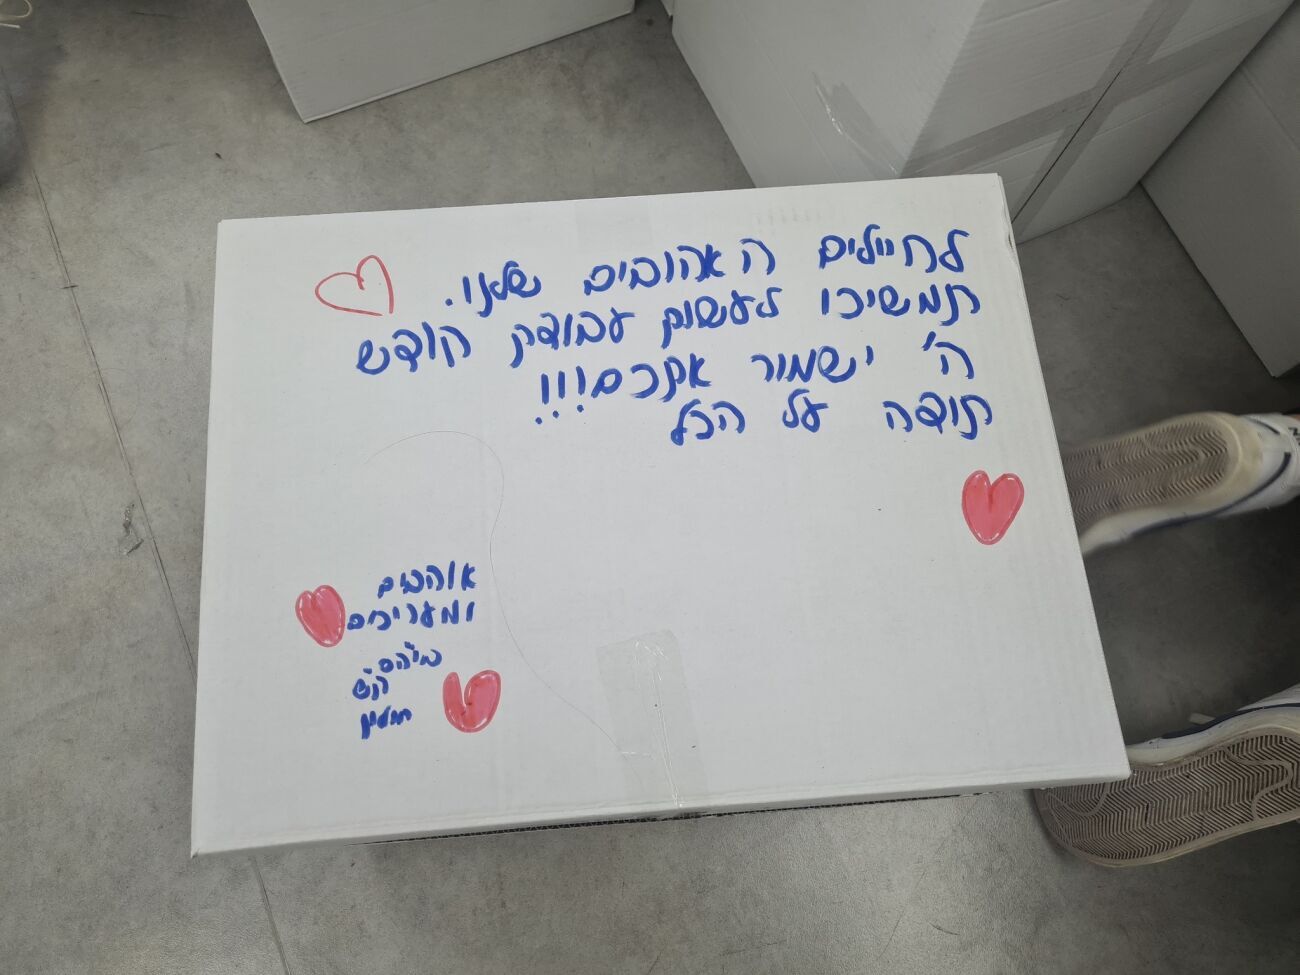 לחיילים האהובים שלנו.
תמשיכו לעשות עבודת קודש
ה' ישמור אתכם!!!
תודה על הכל
אוהבים
ומעריכים
ביה"ס
ק"ש
חולון